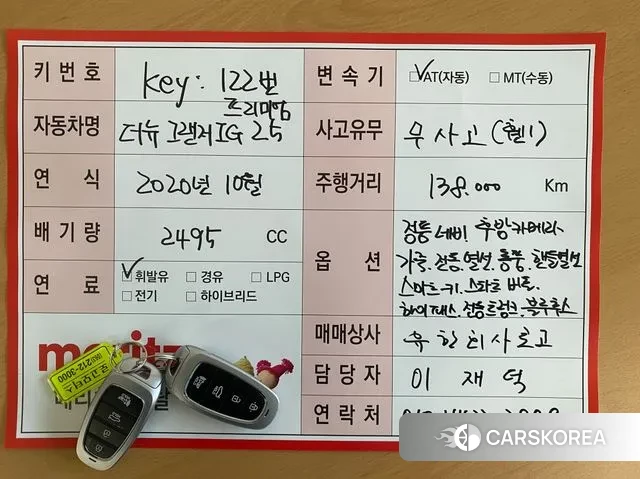 키 번 호 key: 122번
자동차명 더뉴 그랜저IG 2.5 프리미엄
연 식 2020년 10월
배 기 량 2495 CC
연 료 ☑휘발유 □경유 □LPG
□전기 □하이브리드
변 속 기 ☑AT(자동) □MT(수동)
사고유무 무사고 (휀1)
주행거리 138.000 Km
옵 션 정품 네비. 후방카메라.
가죽. 전동. 열선. 통풍. 핸들열선
스마트키. 스타트 버튼.
하이패스. 전동트렁크. 블루투스
매매상사
담 당 자 이 재 덕
연 락 처
로고모터스
031)212-3000
CARSKOREA